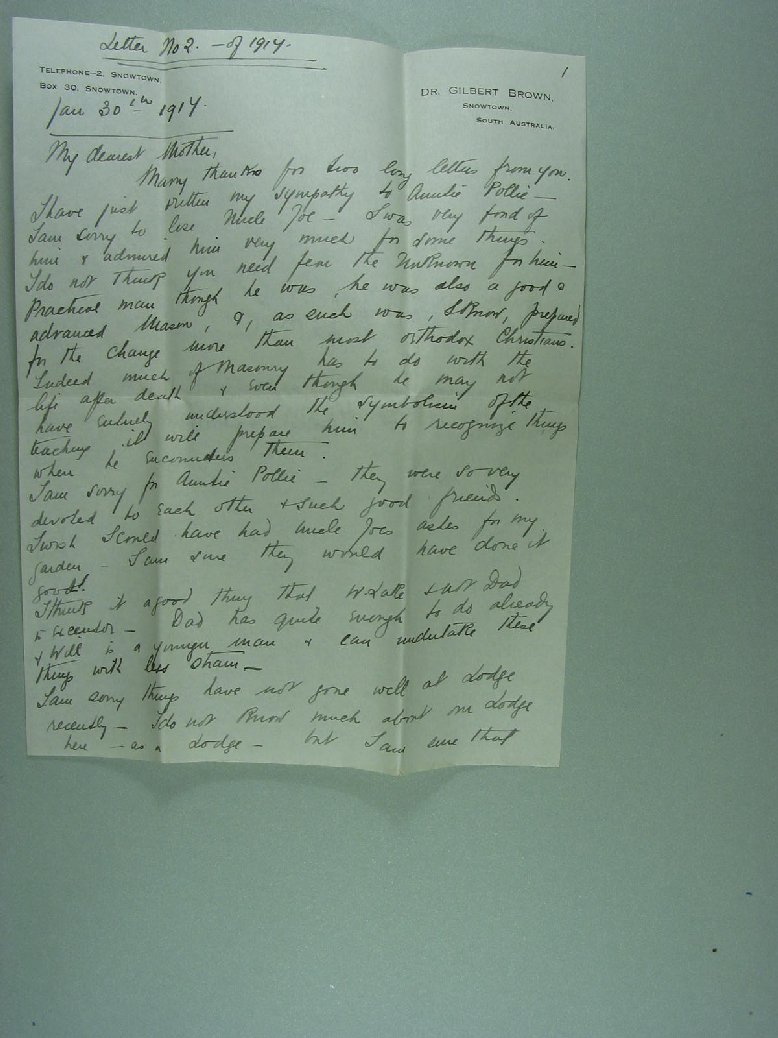 Letter No 2. - of 1914.
1
TELEPHONE-2, SNOWTOWN.
BOX 30, SNOWTOWN.
DR. GILBERT BROWN,
SNOWTOWN,
SOUTH AUSTRALIA.
Jan 30th 1914.
My dearest Mother,
Many thanks for two long letters from you.
I have just written my sympathy to Auntie Pollie -
I am sorry to lose Uncle Joe - I was very fond of
him & admired him very much for some things.
I do not think you need fear the Unknown for him -
Practical man though he was, he was also a good &
advanced Mason, &, as such was, I know, prepared
for the change more than most orthodox Christians.
Indeed much of Masonry has to do with the
life after death & even though he may not
have entirely understood the symbolism of the
teaching it will prepare him to recognize things
when he encounters them.
I am sorry for Auntie Pollie - they were so very
devoted to each other & such good friends.
I wish I could have had Uncle Joes ashes for my
garden - I am sure they would have done it
good!
I think it a good thing that & not Dad
is executor - Dad has quite enough to do already
& Will is a younger man & can undertake these
things with less strain -
I am sorry things have not gone well at Lodge
recently - I do not know much about our Lodge
here - as a Lodge - but I am sure that